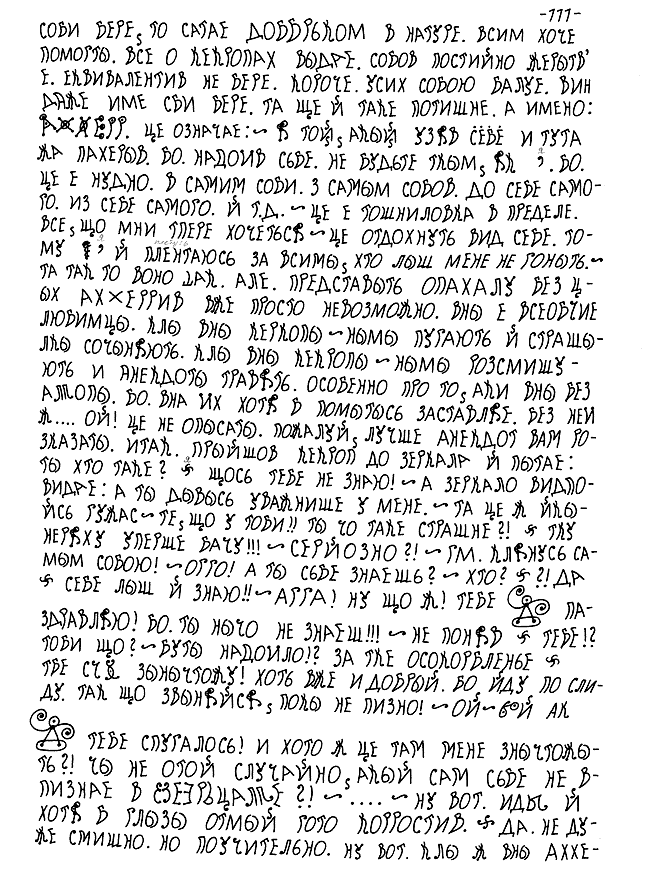 -111-
СОБИ БЕРЕ, ТО САГАЕ В НАТУРЕ. ВСИМ ХОЧЕ
ПОМОГТЫ. ВСЕ О КЕКРОПАХ ВЫДРЕ. СОБОВ ПОСТИЙНО ЖЕРЫТВ'
Е. ЕКВИВАЛЕНТИВ НЕ БЕРЕ. КОРОЧЕ. УСИХ СОБОЮ БАЛУЕ. ВИН
ДАЖЕ ИМЕ СВИ БЕРЕ. ТА ЩЕ Й ТАКЕ ПОТИШНЕ. А ИМЕНО:
ЦЕ ОЗНАЧАЕ: ~ Я ТОЙ, АКЫЙ УЗЯВ СЕБЕ И ТУТА
ЖА ПАХЕРЫВ. БО. НАДОИВ СЬБЕ. НЕ БУДЬТЕ ТКЫМ, ЯК БО.
ЦЕ Е НУДНО. В САМИМ СОБИ. З САМЫМ СОБОВ. ДО СЕБЕ САМО-
ГО. ИЗ СЕБЕ САМОГО. Й Т.Д. ~ ЦЕ Е ТОШНИЛОВКА В ПРЕДЕЛЕ.
ВСЕ, ЩО МНИ ТПЕРЕ ХОЧЕТЬСЯ ~ ЦЕ ОТДОХНУТЬ ВИД СЕБЕ. ТО-
МУ Я Й ПЛЕНТАЮСЬ ЗА ВСИМЫ, ХТО ЛЫШ МЕНЕ НЕ ГОНЫТЬ. ~
ТА ТАК ТО ВОНО ДАК. АЛЕ. ПРЕДСТАВЫТЬ ОПАХАЛУ БЕЗ Ц-
ЫХ АХХЕРРИВ ВЖЕ ПРОСТО НЕВОЗМОЖНО. ВНЫ Е ВСЕОБЧИЕ
ЛЮБИМЦЫ. КЛЫ ВНЫ КЕРКОПЫ ~ НЫМЫ ПУГАЮТЬ Й СТРАШЫ-
ЛКЫ СОЧЫНЯЮТЬ. КЛЫ ВНЫ КЕКРОПЫ ~ НЫМЫ РОЗСМИШУ-
ЮТЬ И АНЕКДОТЫ ТРАВЯТЬ. ОСОБЕННО ПРО ТО, АКИ ВНЫ БЕЗ
БО. ВНА ИХ ХОТЯ В ПОМЫТЫСЬ ЗАСТАВЛЯЕ. БЕЗ НЕИ
Ж.... ОЙ! ЦЕ НЕ ОПЫСАТЫ. ПОЖАЛУЙ, ЛУЧШЕ АНЕКДОТ ВАМ РО-
ЗКАЗАТЫ. ИТАК. ПРЫЙШОВ КЕКРОП ДО ЗЕРКАЛА Й ПЫТАЕ:
ТЫ ХТО ТАКЕ? Я ЩОСЬ ТЕБЕ НЕ ЗНАЮ! ~ А ЗЕРКАЛО ВИДПО-
ВИДАЕ: А ТЫ ДЫВЫСЬ УВАЖНИШЕ У МЕНЕ. ~ ТА ЦЕ Ж ЙКЫ-
ЙСЬ ГУЖАС ~ ТЕ, ЩО У ТОБИ!! ТЫ ЧО ТАКЕ СТРАШНЕ?! Я ТКУ
НЕРЯХУ УПЕРШЕ БАЧУ!!! ~ СЕРЙОЗНО?! ~ ГМ. КЛЯНУСЬ СА-
МЫМ СОБОЮ! ~ ОГГО! А ТЫ СЬБЕ ЗНАЕШЬ? ~ ХТО? Я?! ДА
Я СЕБЕ ЛЫШ Й ЗНАЮ!! ~ АГГА! НУ ЩО Ж! ТЕБЕ ПА-
ЗДРАВЛЯЮ! БО. ТЫ НЫЧО НЕ ЗНАЕШ!!! ~ НЕ ПОНЯВ Я ТЕБЕ!?
ТОБИ ЩО? ~ БУТЫ НАДОИЛО!? ЗА ТКЕ ОСКОРБЛЕНЬЕ Я
ТБЕ ЗЫНЫЧТОЖУ! ХОТЬ ВЖЕ И ДОБРЫЙ. БО ЙДУ ПО СЛИ-
ДУ. ТАК ЩО ЗВЫНЯЙСЯ, ПОКЫ НЕ ПИЗНО! ~ ОЙ ~ ОЙ АК
ТЕБЕ СПУГАЛОСЬ! И ХОТО Ж ЦЕ ТАМ МЕНЕ ЗНЫЧТОЖЫ-
ТЬ?! ЧЫ НЕ ОТОЙ СЛУЧАЙНО, АКЫЙ САМ СЬБЕ НЕ В-
ПИЗНАЕ В ?! ~ .... ~ НУ ВОТ. ИДЫ Й
ХОТЯ В ГЛЫЗЫ ОТМЫЙ ТОГО КОРРОСТИВ. Я ДА. НЕ ДУ-
ЖЕ СМИШНО. НО ПОУЧИТЕЛЬНО. НУ ВОТ. КЛЫ Ж ВНЫ АХХЕ-